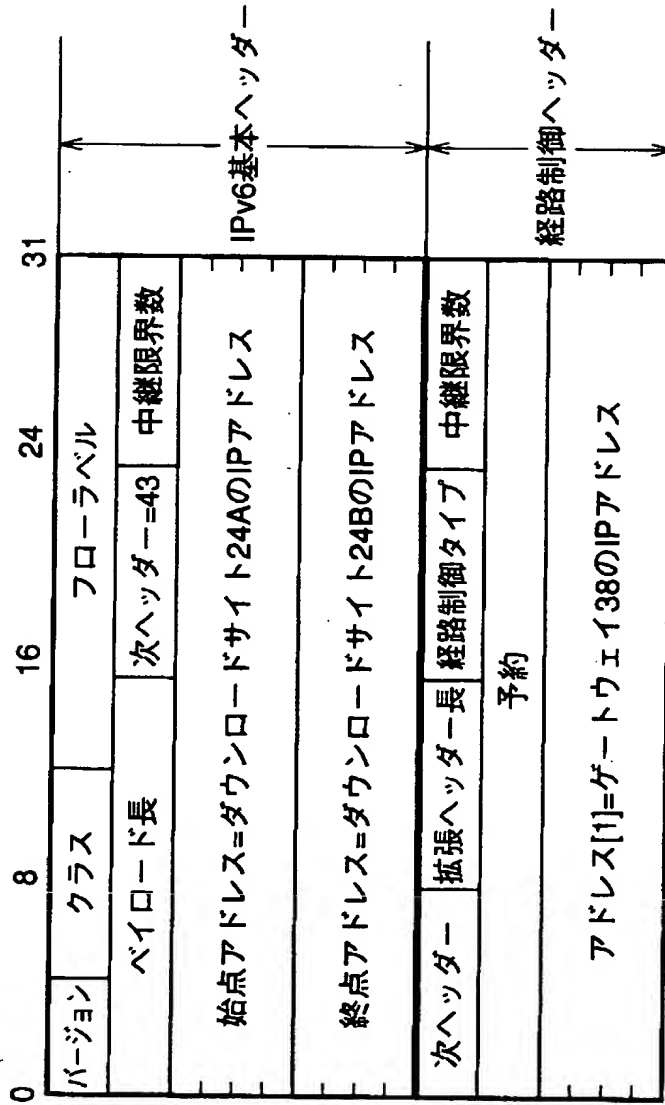 0 8 16 24 31
バージョン クラス フローラベル
ベイロード長 次ヘッダー=43 中継限界数
始点アドレス=ダウンロードサイト24AのIPアドレス
終点アドレス=ダウンロードサイト24BのIPアドレス
IPv6基本ヘッダー
次ヘッダー 拡張ヘッダー長 経路制御タイプ 中継限界数
予約
アドレス[1]=ゲートウェイ38のIPアドレス
経路制御ヘッダー